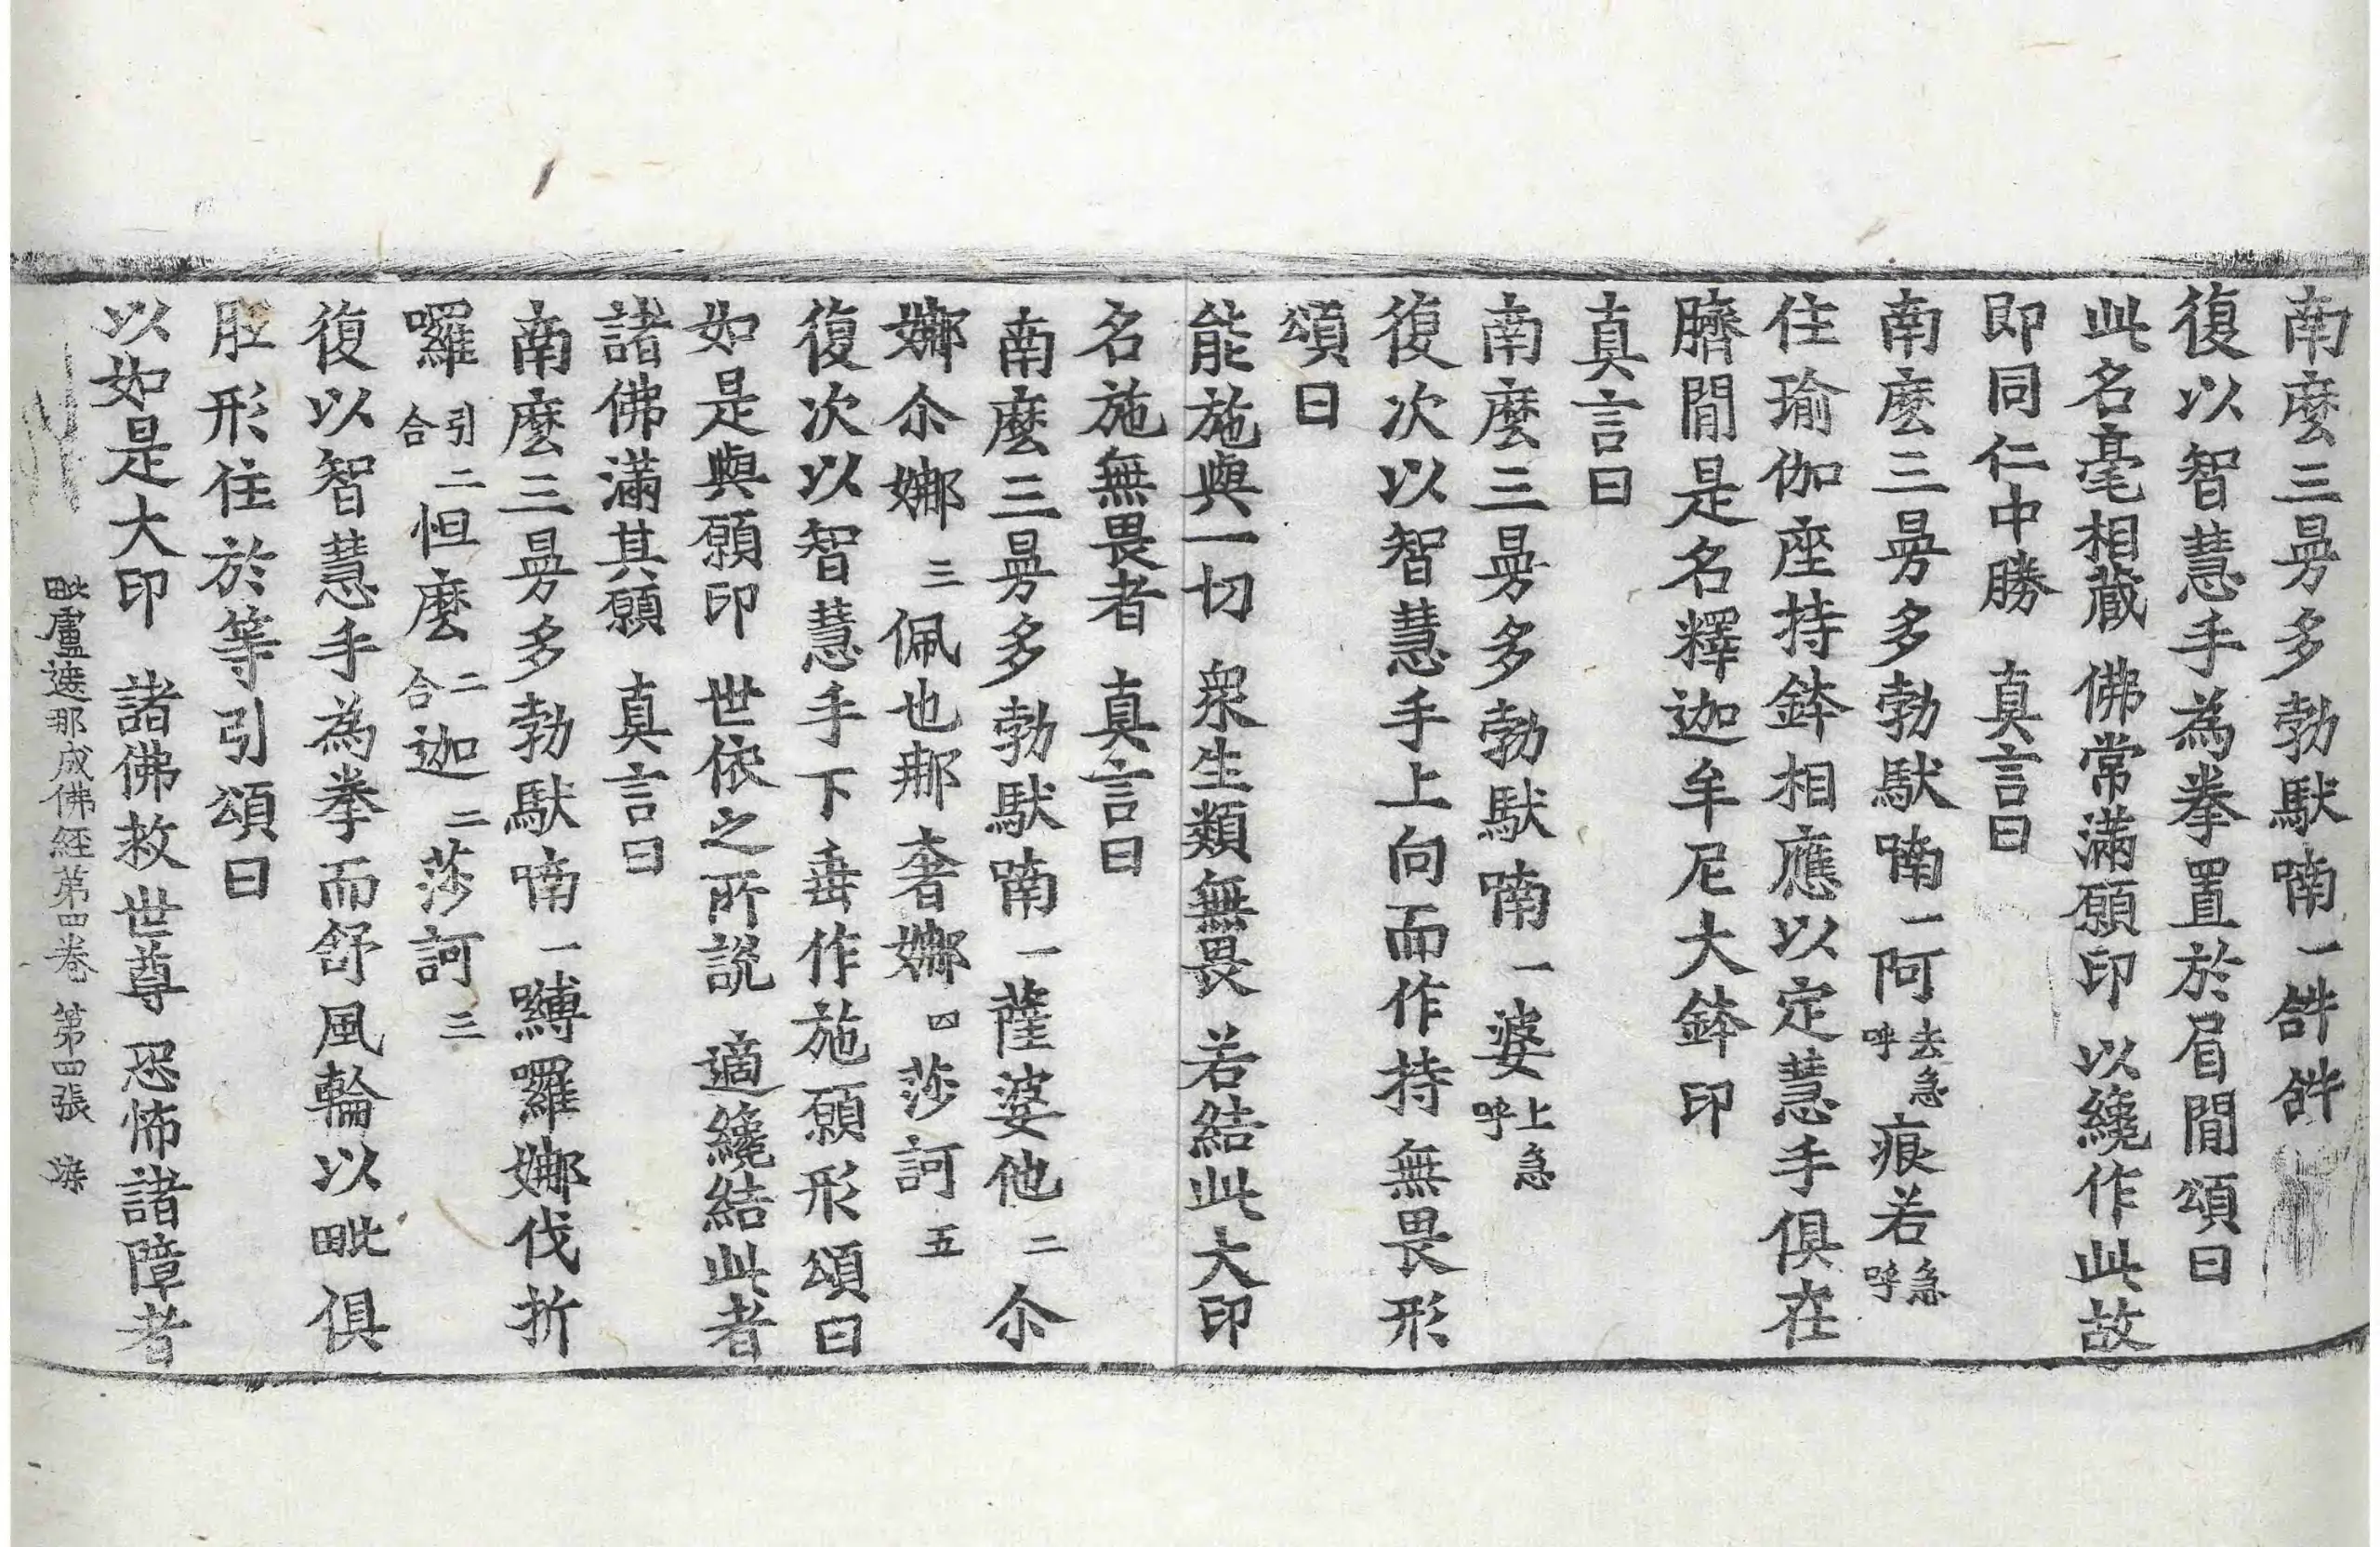 南麼三曼多勃馱喃一𤙖𤙖
復以智慧手為拳置於眉間頌曰
此名毫相藏 佛常滿願印 以纔作此故
即同仁中勝 真言曰
南麼三曼多勃馱喃一阿去急呼痕若急呼
住瑜伽座持鉢相應以定慧手俱在
臍間是名釋迦牟尼大鉢印
真言曰
南麼三曼多勃馱喃一婆上急呼
復次以智慧手上向而作持無畏形
頌曰
能施與一切 衆生類無畏 若結此大印
名施無畏者 真言曰
南麼三曼多勃馱喃一薩婆他二尒
娜尒娜三佩也那奢娜四莎訶五
復次以智慧手下垂作施願形頌曰
如是與願印 世依之所說 適纔結此者
諸佛滿其願 真言曰
南麼三曼多勃馱喃一嚩囉娜伐折
囉引二合怛麼二合迦二莎訶三
復以智慧手為拳而舒風輪以毗俱
胝形住於等引頌曰
以如是大印 諸佛救世尊 恐怖諸障者
毗盧遮那成佛經第四卷 第四張 染